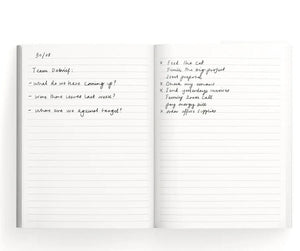 30/08
Team Debrief:
- What do we have coming up?
- Were there issues last week?
- Where are we against target?
x Feed the cat
Finish the big project
Send proposal
x Check my emails
x Send yesterdays invoices
Family Zoom call
Pay energy bill
x Order office supplies